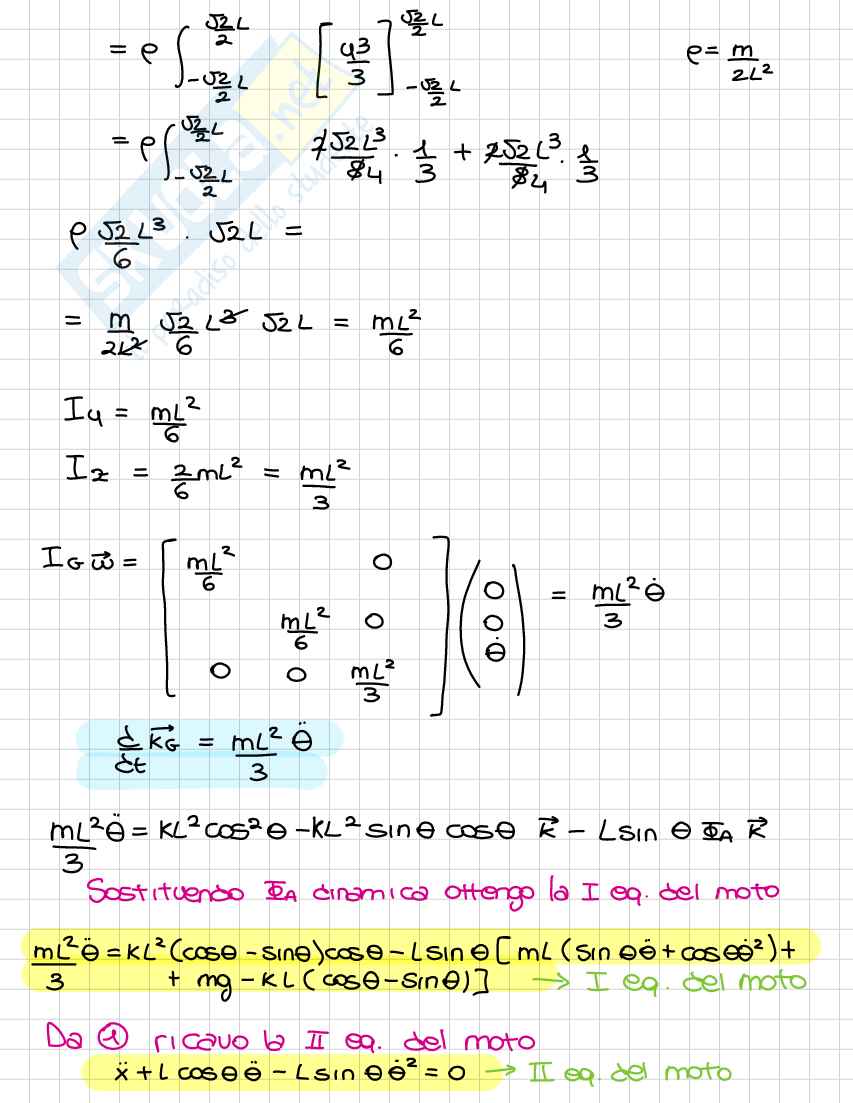 = ρ ∫_{-√2/2 L}^{√2/2 L} [y³/3]_{-√2/2 L}^{√2/2 L} ρ = m/2L²
= ρ ∫_{-√2/2 L}^{√2/2 L} 2√2L³/84 · 1/3 + 2√2L³/84 · 1/3
ρ √2/6 L³ · √2L =
= m/2L² √2/6 L³ √2L = mL²/6
Iy = mL²/6
Iz = 2/6 mL² = mL²/3
I_G ω⃗ = [mL²/6 0
mL²/6 0
0 0 mL²/3] (0 0 θ̇) = mL²/3 θ̇
d/dt K⃗_G = mL²/3 θ̈
mL²/3 θ̈ = KL²cos²θ - KL² sinθ cosθ K⃗ - Lsin θ Φ_A K⃗
Sostituendo Φ_A dinamica ottengo la I eq. del moto
mL²/3 θ̈ = KL²(cosθ - sinθ)cosθ - Lsinθ[mL(sin θθ̈ + cosθθ̇²) +
+ mg - KL(cosθ - sinθ)] → I eq. del moto
Da ① ricavo la II eq. del moto
ẍ + L cosθ θ̈ - Lsin θ θ̇² = 0 → II eq. del moto
skuola.net
il paradiso dello studente